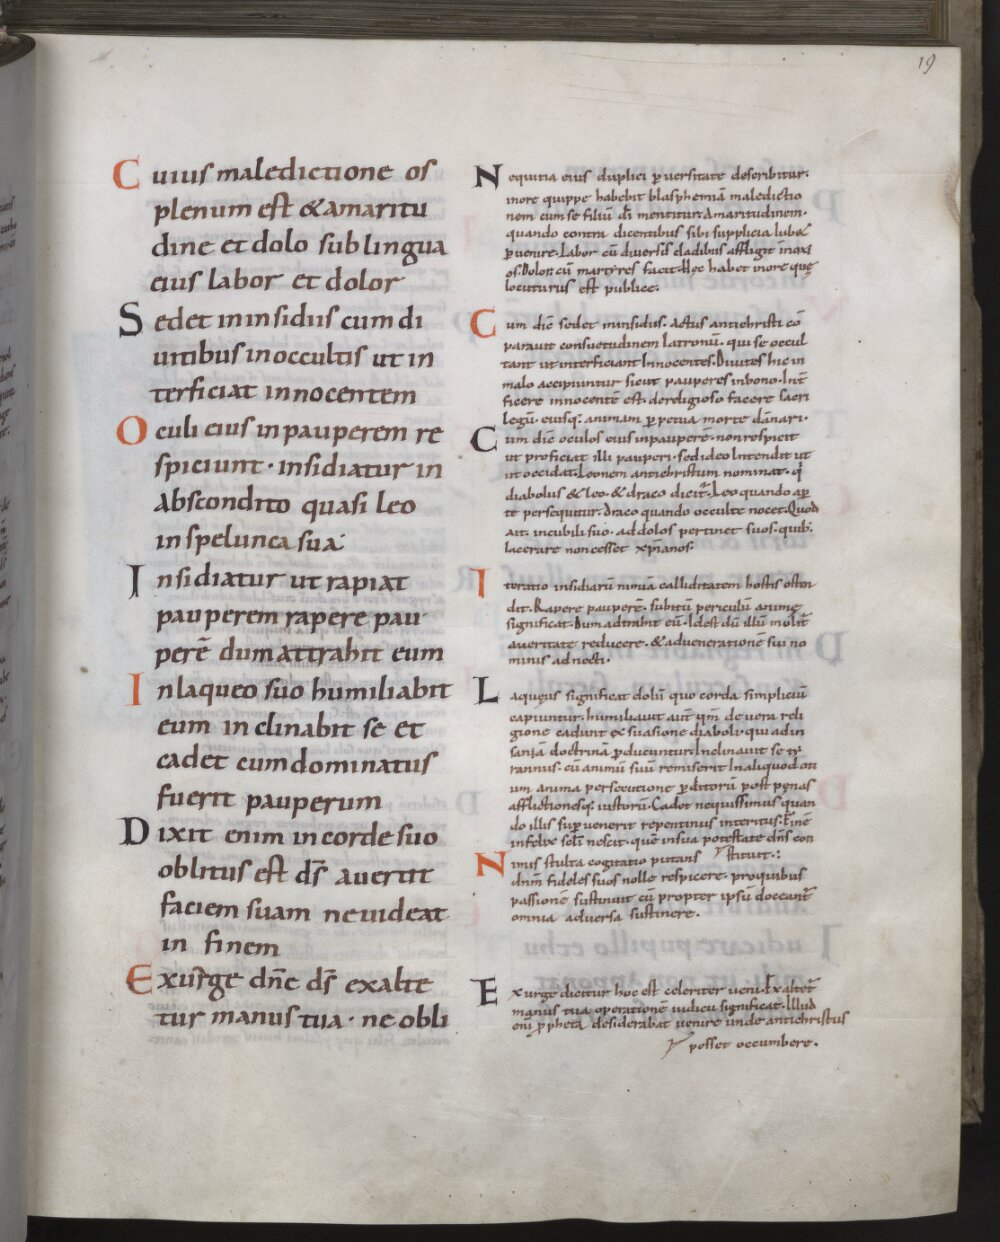 19
Cuius maledictione os
plenum est & amaritu
dine et dolo sub lingua
eius labor et dolor
Sedet in insidiis cum di
uitibus in occultis ut in
terficiat innocentem
Oculi eius in pauperem re
spiciunt · insidiatur in
abscondito quasi leo
in spelunca sua·
Insidiatur ut rapiat
pauperem rapere pau
perē dum attrahit eum
In laqueo suo humiliabit
eum inclinabit se et
cadet cum dominatus
fuerit pauperum
Dixit enim in corde suo
oblitus est ds̄ auertit
faciem suam ne uideat
in finem
Exurge dn̄e ds̄ exalte
tur manus tua · ne obli
Nequitia eius duplici puersitate describitur·
in ore quippe habebit blasphemiā maledictio
nem cum se filiū dī mentitur· Amaritudinem·
quando contra dicentibus sibi supplicia iub&
puenire· Labor cū diuersis cladibus affligit inoxi
os· Dolor cū martyres facit· Hęc habet in ore quę
locuturus est publice·
Cum dic̄ sedet in insidiis· actus antichristi cō
parauit consuetudinem latronū· qui se occul
tant ut interficiant innocentes· Diuites hic in
malo accipiuntur sicut pauperes in bono· Int̄
ficere innocentē est· de religioso facere sacri
legū· eiusq; animam ppetua morte dānari·
Cum dic̄ oculos eius in paupere· non respicit
ut proficiat illi pauperi· sed ideo intendit ut
ut occidat· Leonem antichristum nominat· q
diabolus & leo· & draco dicit̄· Leo quando ap
te persequitur· draco quando occulte nocet· Quod
ait· in cubili suo· ad dolos pertinet suos· quib;
lacerare non cesset xp̄ianos·
Iteratio insidiarū nimiā calliditatem hostis osten
dit· Rapere pauperē· subitū periculū animę
significat· Dum adtrahit eū· Id est dū illū molit̄
a ueritate reducere· & ad uenerationē sui no
minis adnecti·
Laqueus significat dolū quo corda simpliciū
capiuntur· humiliauit aut̄ qm̄ de uera reli
gione cadunt ex suasione diaboli· qui ad in
saniā doctrinā pducuntur· Inclinauit se ty
rannus· cū animū suū remiserit In aliquod oti
um anima persecutione pditorū post penas
afflictionesq; iustorū· Cadet nequissimus quan
do illis supuenerit repentinus interitus· Finē
infelix sclī nescit· que in sua potestate dn̄s con
stituit·:
Nimis stulta cogitatio putans
dn̄m fideles suos nolle respicere· pro quibus
passionē sustinuit cū propter ipsū doceant̄
omnia aduersa sustinere·
Exurge dicitur hoc est celeriter ueni· Exaltet̄
manus tua operationē iudicii significat· Illud
enī ppheta desiderabat uenire unde antichristus
posset occumbere·